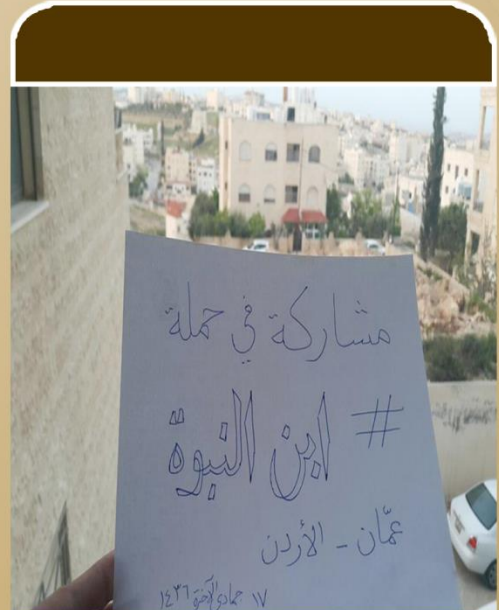 مشاركة في حملة
# ابن النبوة
عمّان - الأردن
١٧ جمادى الآخرة ١٤٣٦